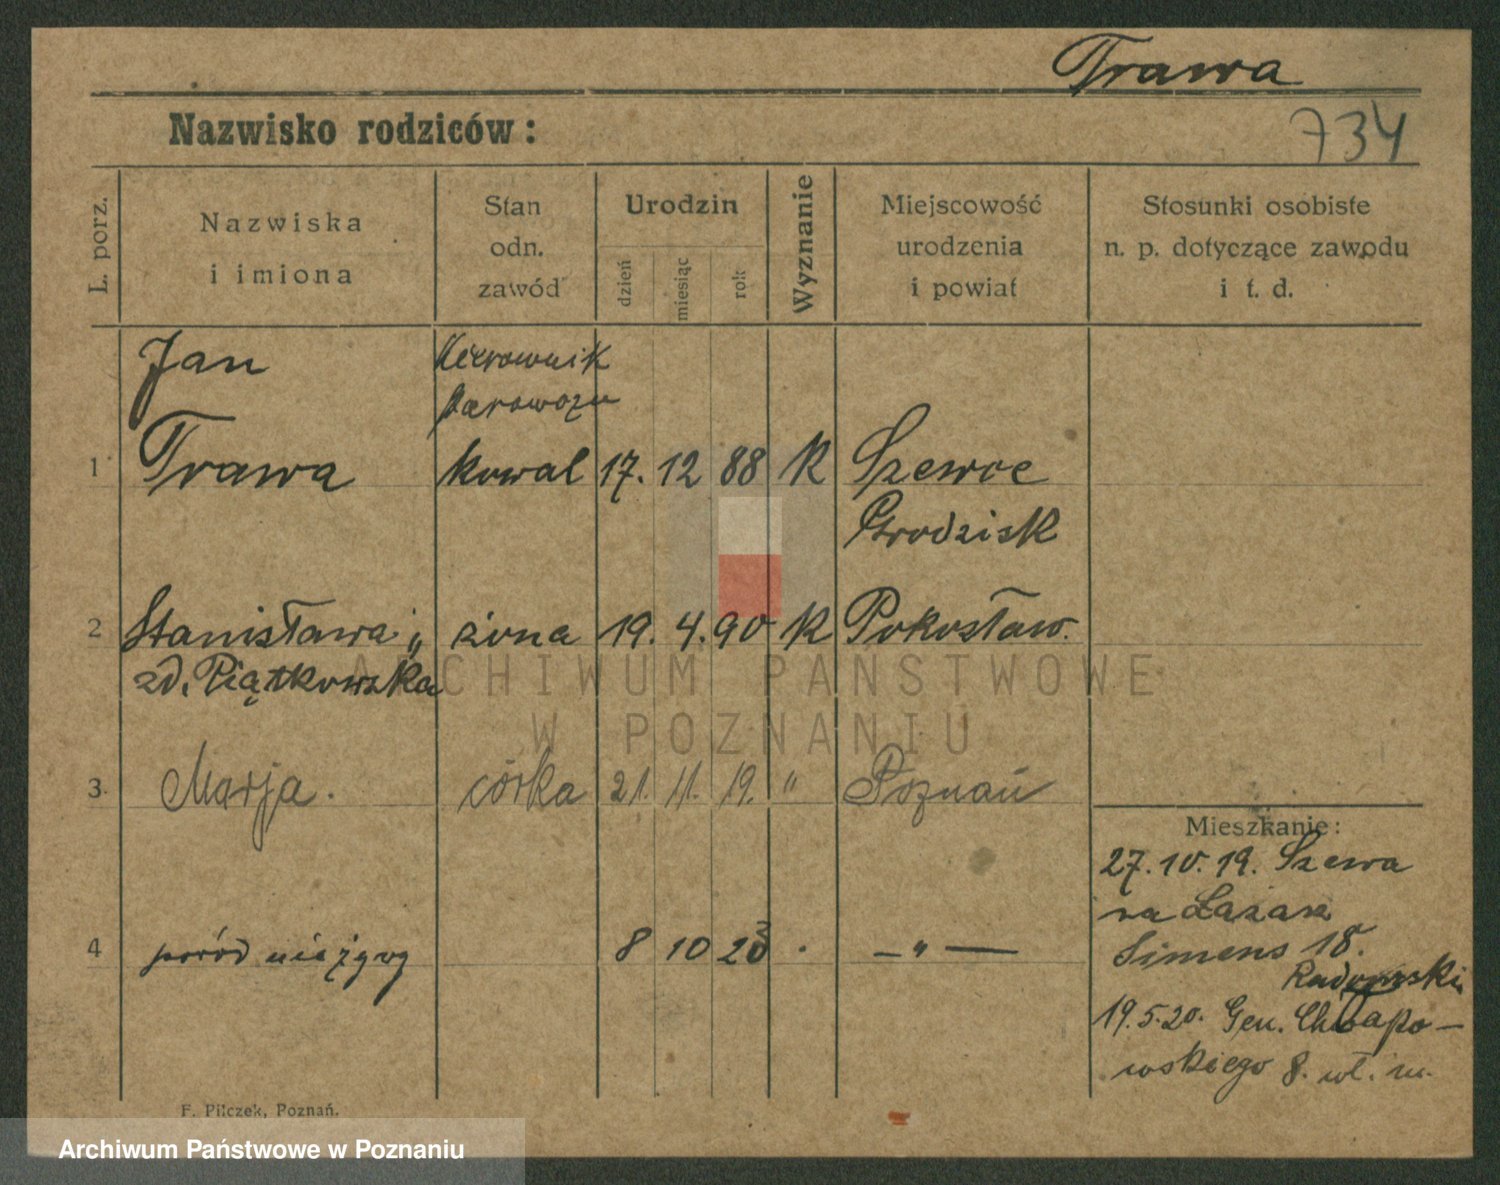 Trawa
Nazwisko rodziców:
734
L. porz.
Nazwiska
i imiona
Stan
odn.
zawód
Urodzin
dzień
miesiąc
rok
Wyznanie
Miejscowość
urodzenia
i powiat
Stosunki osobiste
n. p. dotyczące zawodu
i t. d.
Jan Kierownik
parowozu
1 Trawa kowal 17. 12 88 K Szewce
Grodzisk
2 Stanisława " żona 19. 4. 90 K Pokosław.
zd. Piątkowska
ARCHIWUM PAŃSTWOWE
W POZNANIU
3. Marja. córka 21. 11. 19. " Poznań
Mieszkanie:
27.10.19. Szewa
na Łazarz
4 poród nieżywy 8 10 23 . — " —
Simens 18.
Radomski
19.5.20. Gen. Chłapo-
wskiego 8. wł. m.
F. Pilczek, Poznań.
Archiwum Państwowe w Poznaniu